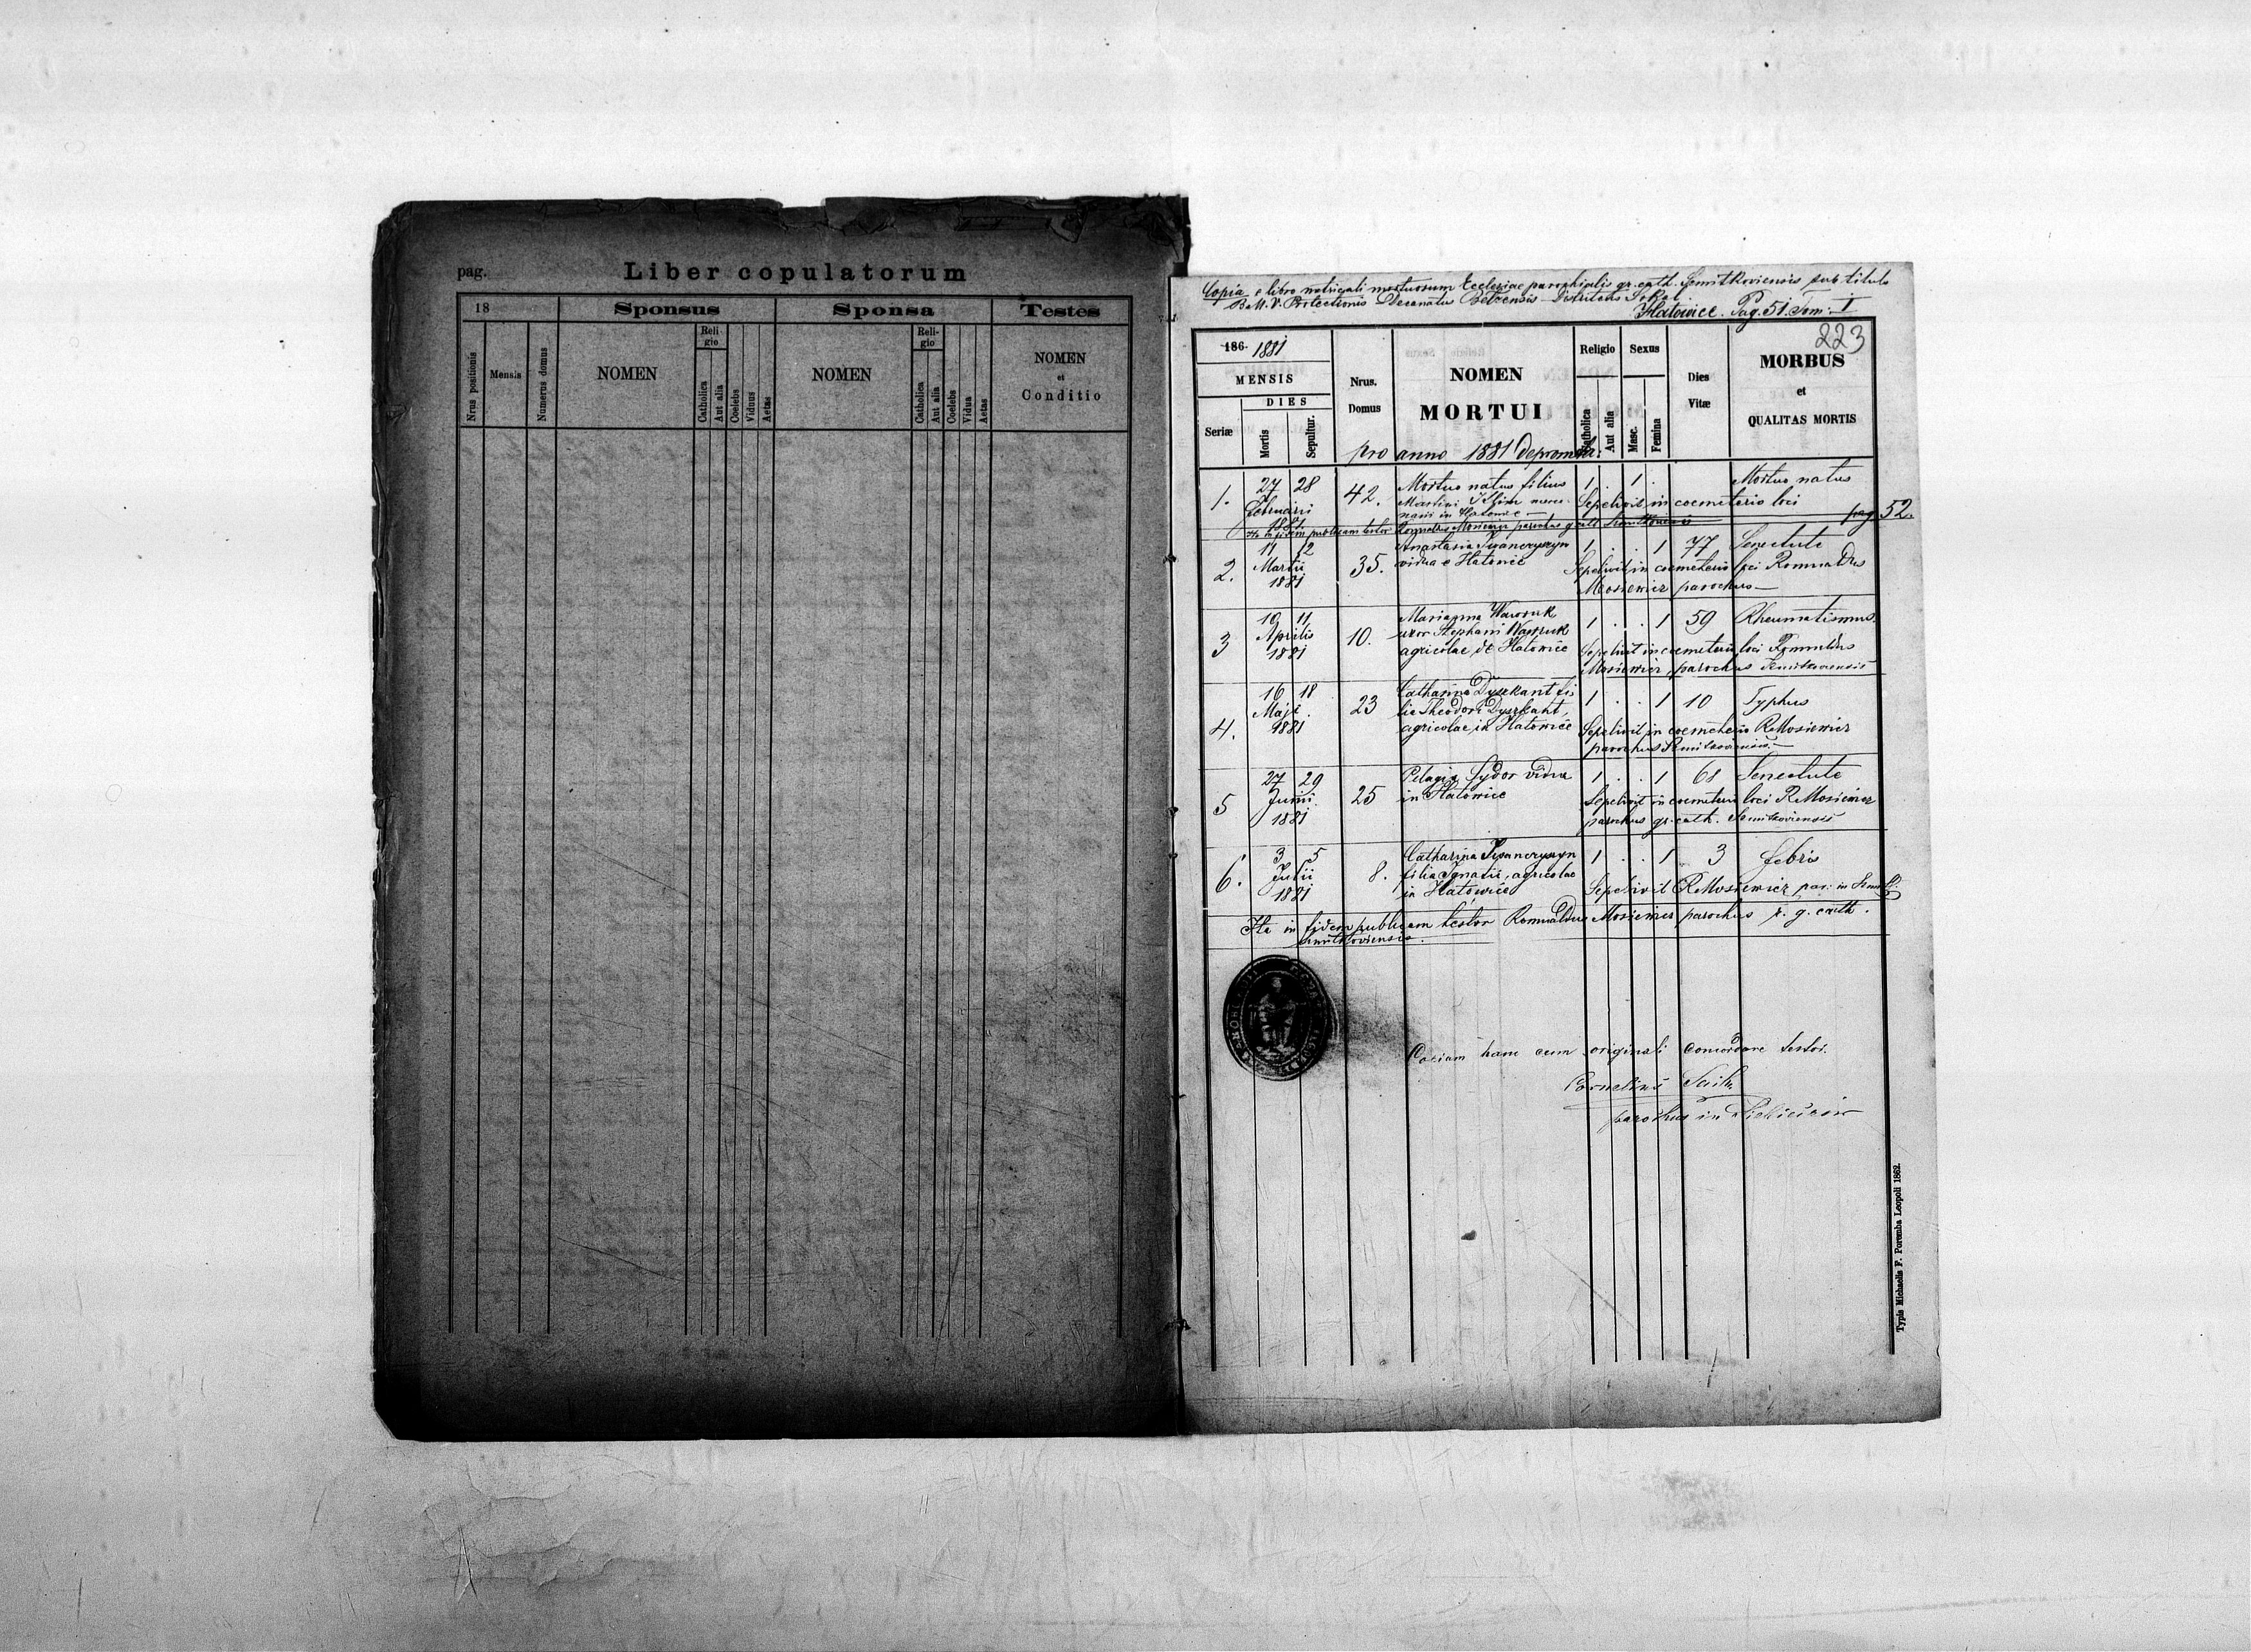 pag.
Liber copulatorum
18
Sponsus
Sponsa
Testes
Nrus positionis
Mensis
Numerus domus
NOMEN
Religio
Catholica
Aut alia
Coelebs
Viduus
Aetas
NOMEN
Religio
Catholica
Aut alia
Coelebs
Vidua
Aetas
NOMEN
et
Conditio
Copia e libro matricali mortuorum Ecclesiae parochialis gr. cath. Semitkoviensis sub titulo
B. M. V. Protectionis Decanatus Belzensis Districtus Sokal
Hatowice. Pag. 51. Tom. I
223
186 1881
MENSIS
DIES
Seriæ
Mortis
Sepultur.
Nrus.
Domus
NOMEN
MORTUI
Religio
Catholica
Aut alia
Sexus
Masc.
Femina
Dies
Vitæ
MORBUS
et
QUALITAS MORTIS
pro anno 1881 depromta:
1. 27 28 42. Mortuo natus filius 1 . 1 . Mortuo natus
Februarii Martini Klim Sepelivit in coemeterio loci
1881. in Hatowice pag. 52.
Ita in fidem publicam testor Romualdus Mosiewicz parochus g. cath. Semitkoviensis
11 12 Anastasia Iwanczyszyn 1 . . 1 77 Senectute
2. Martii 35. vidua e Hatowice Sepelivit in coemeterio loci Romualdus
1881 Mosiewicz parochus
10 11 Marianna Wawruk 1 . . 1 59 Rheumatismus.
3 Aprilis 10. uxor Stephani Wawruk
1881 agricolae de Hatowice Sepelivit in coemeterio loci Romualdus
Mosiewicz parochus Semitkoviensis
16 18 Catharina Dyszkant fi-
Maji 23 lia Theodori Dyszkant, 1 . . 1 10 Typhus
4. 1881 agricolae in Hatowice Sepelivit in coemeterio R Mosiewicz
parochus Semitkoviensis.
27 29 Pelagia Sydor vidua 1 . . 1 68 Senectute
5 Junii 25 in Hatowice Sepelivit in coemeterio loci R Mosiewicz
1881 parochus gr. cath. Semitkoviensis
3 5 Catharina Iwanczyszyn 1 . . 1 3 febris
6. Julii 8. filia Ignatii, agricolae
1881 in Hatowice Sepelivit R Mosiewicz par: in
Ita in fidem publicam testor Romualdus Mosiewicz parochus r. g. cath.
Semitkoviensis.
Copiam hanc cum originali concordare testor.
Cornelius
parochus in
Typis Michaelis F. Poremba Leopoli 1862.